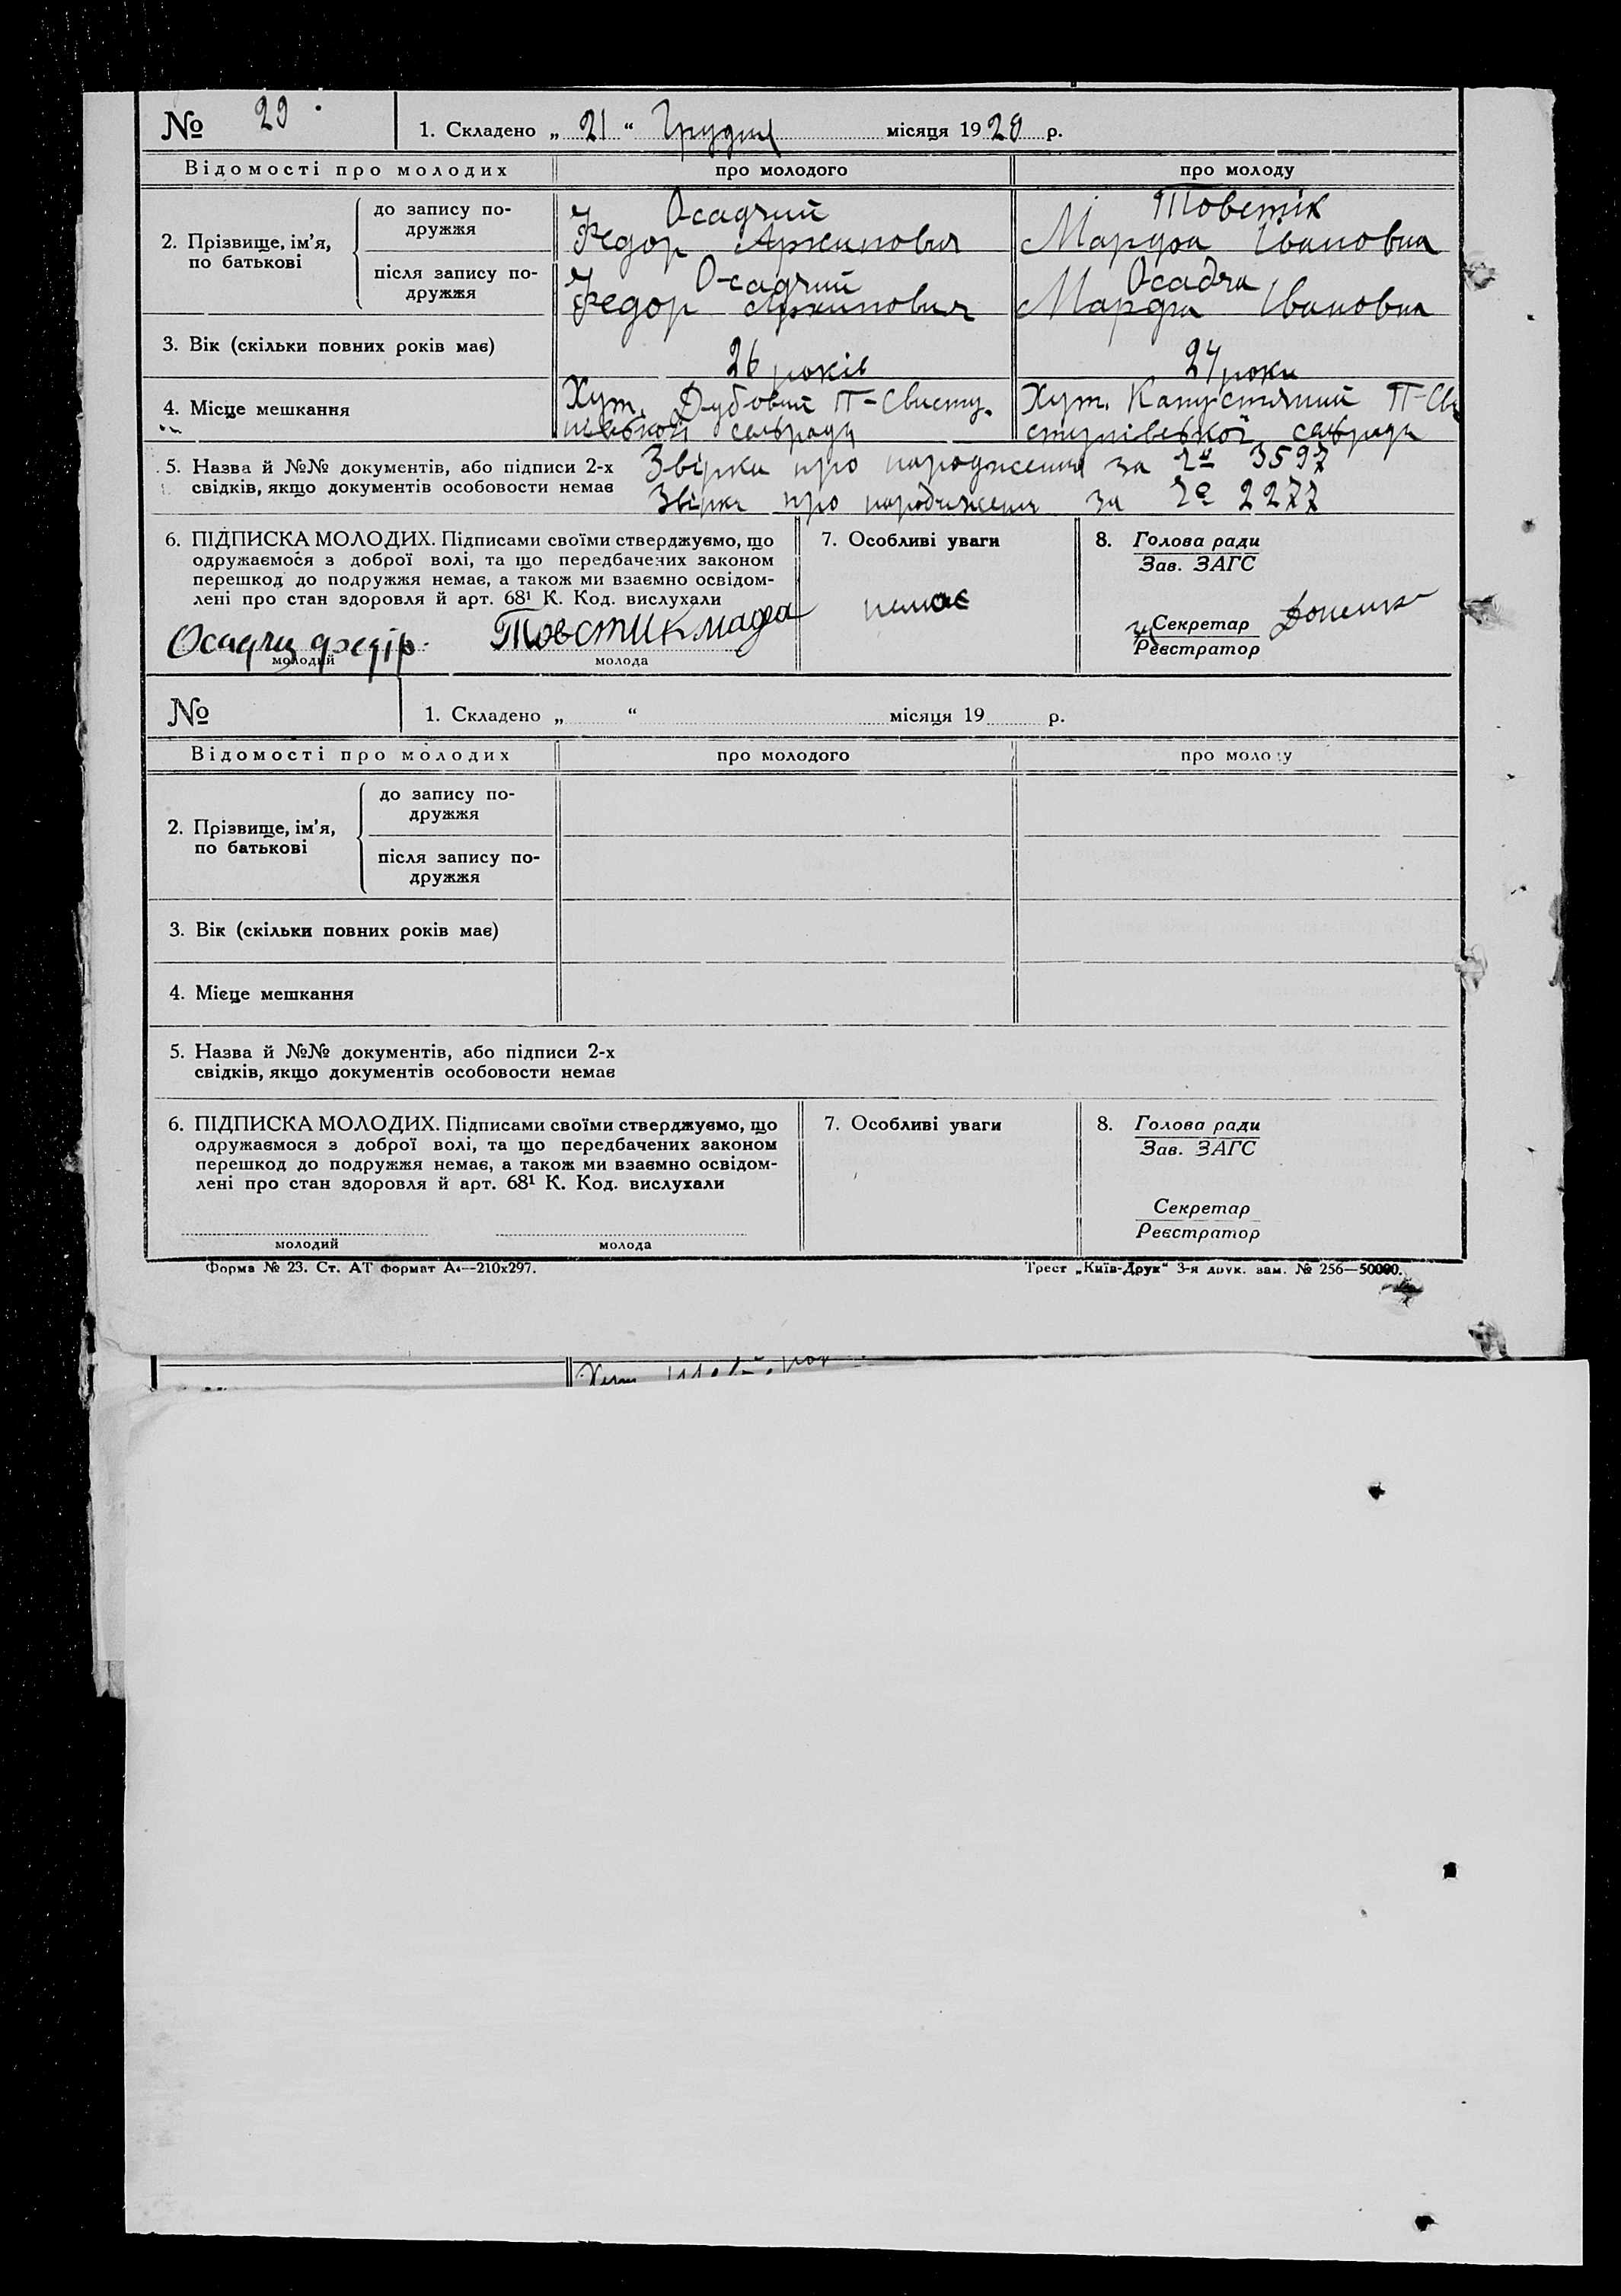 № 29
1. Складено „ 21 “ Грудня місяця 1928 р.
Відомості про молодих про молодого про молоду
2. Прізвище, ім’я, по батькові
до запису подружжя
Осадчий Федор Архипович
Товстік Марфа Івановна
після запису подружжя
Осадчий Федор Архипович
Осадча Марфа Івановна
3. Вік (скільки повних років має)
26 років
24 роки
4. Місце мешкання
Хут. Дубовий П-Свисту-
нівської сельради
Хут. Капустяний П-Сви
стунівської сельради
5. Назва й №№ документів, або підписи 2-х
свідків, якщо документів особовости немає
Звірка про народження за № 3597
Звірка про народження за № 2277
6. ПІДПИСКА МОЛОДИХ. Підписами своїми стверджуємо, що
одружаємося з доброї волі, та що передбачених законом
перешкод до подружжя немає, а також ми взаємно освідом-
лені про стан здоровля й арт. 68¹ К. Код. вислухали
Осадчи федір
молодий
Товстик мафа
молода
7. Особливі уваги
немає
8. Голова ради
Зав. ЗАГС
Секретар
Реєстратор
№
1. Складено „ “ місяця 19 р.
Відомості про молодих про молодого про молоду
2. Прізвище, ім’я,
по батькові
до запису по-
дружжя
після запису по-
дружжя
3. Вік (скільки повних років має)
4. Місце мешкання
5. Назва й №№ документів, або підписи 2-х
свідків, якщо документів особовости немає
6. ПІДПИСКА МОЛОДИХ. Підписами своїми стверджуємо, що
одружаємося з доброї волі, та що передбачених законом
перешкод до подружжя немає, а також ми взаємно освідом-
лені про стан здоровля й арт. 68¹ К. Код. вислухали
молодий
молода
7. Особливі уваги
8. Голова ради
Зав. ЗАГС
Секретар
Реєстратор
Форма № 23. Ст. АТ формат А₄—210х297.
Трест „Київ-Друк“ 3-я друк. зам. № 256—50000.